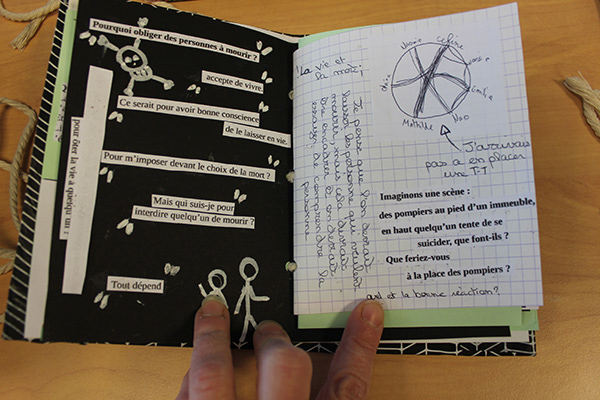 Pourquoi obliger des personnes à mourir ?
accepte de vivre.
Ce serait pour avoir bonne conscience
de le laisser en vie.
pour ôter la vie à quelqu'un :
Pour m'imposer devant le choix de la mort ?
Mais qui suis-je pour
interdire quelqu'un de mourir ?
Tout dépend
La vie et
la mort,
Je pense que l'on devrait
laisser les personne qui veulent
mourir, mais cela devrait
être encadrer et on devrait
essayer de comprendre la
personne.
Naomie
Celine
Mathilde
Noo
J'arrivais
pas a en placer
une
Imaginons une scène :
des pompiers au pied d'un immeuble,
en haut quelqu'un tente de se
suicider, que font-ils ?
Que feriez-vous
à la place des pompiers ?
quel et la bonne réaction ?